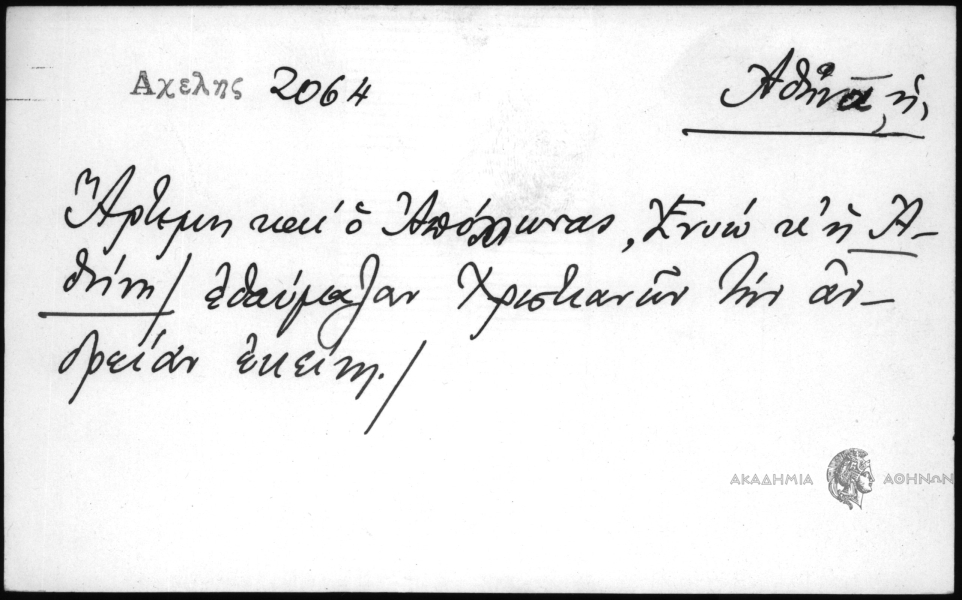 Αχελης 2064
Ἀθηνᾶ, ἡ,
Ἄρτεμη καί ὁ Ἀπόλλωνας, Ἐνυώ κ' ἡ Ἀ-
θήνη/ ἐθαύμαζαν Χριστιανῶν τήν ἀν-
δρείαν ἐκείνη./
ΑΚΑΔΗΜΙΑ ΑΘΗΝΩΝ